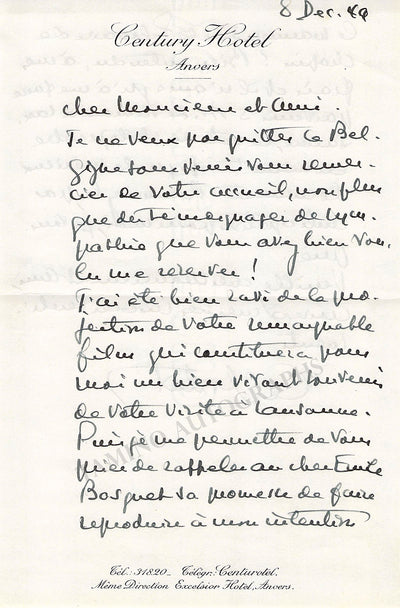 8 Dec. 49
Century Hotel
Anvers
cher Monsieur et Ami.
Je ne veux pas quitter la Bel-
gique sans venir vous remer-
cier de votre accueil, non plus
que des témoignages de sym-
pathie que vous avez bien vou-
lu me réserver !
J'ai été bien ravi de la pro-
jection de votre remarquable
film qui constituera pour
moi un bien vivant souvenir
de votre visite à Lausanne.
Puis-je me permettre de vous
prier de rappeler au cher Emile
Bosquet sa promesse de faire
reproduire à mon intention
TAMINO AUTOGRAPHS
Tél.: 31820_ Télégr.: Centurotel.
Même Direction Excelsior Hotel, Anvers.